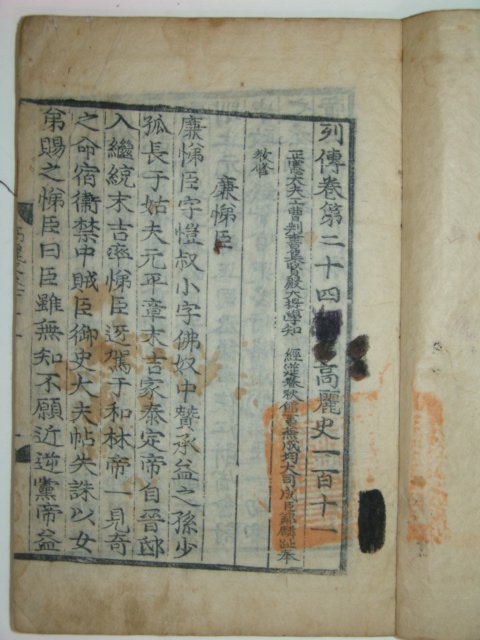 列傳卷第二十四 高麗史一百十一
正憲大夫工曹判書集賢殿大提學知 經筵春秋館事兼成均大司成臣鄭麟趾奉
教修
廉悌臣
廉悌臣字愷叔小字佛奴中贊承益之孫少
孤長于姑夫元平章末吉家泰定帝自晋邸
入繼統末吉密悌臣迓駕于和林帝一見奇
之命宿衞禁中賊臣御史大夫帖失誅以女
弟賜之悌臣曰臣雖無知不願近逆黨帝益